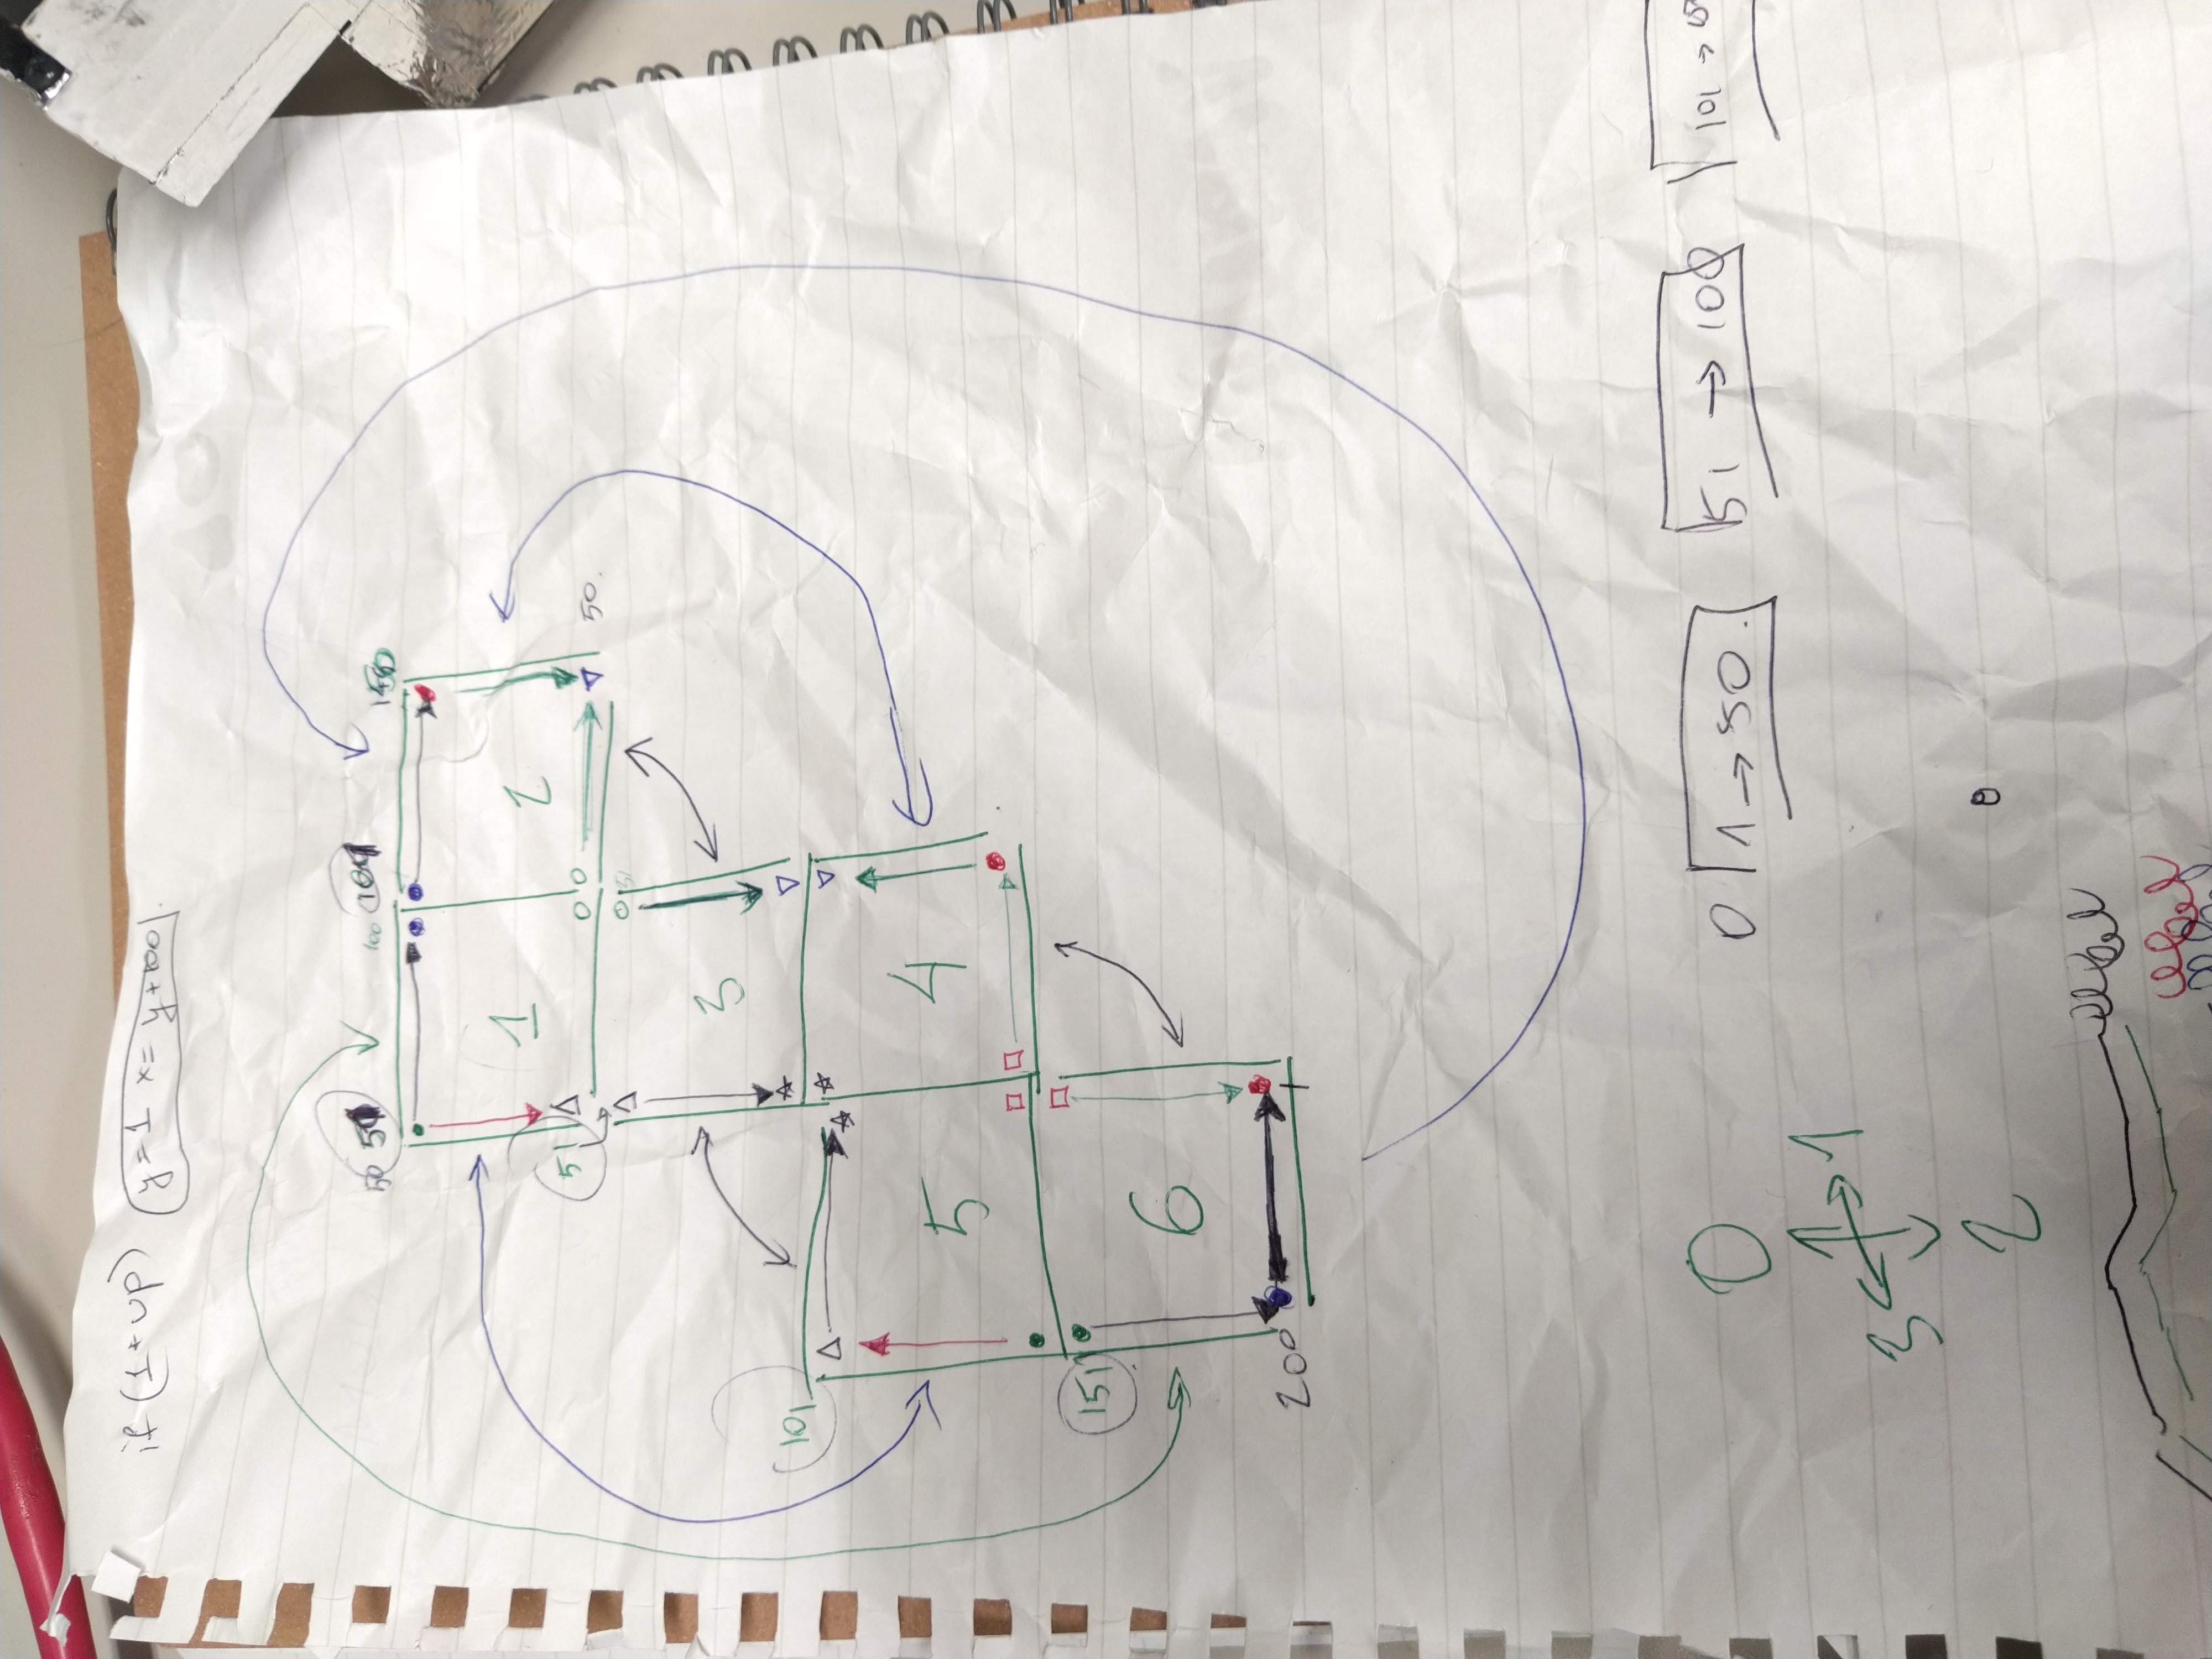 if (1+up) y=1 x= y+100
50 51 100 101 150
1 2
51 50.
51
3
101
5 4
151
6
200 1
0 1→50. 51 → 100 101 →
0
1
3
2
0